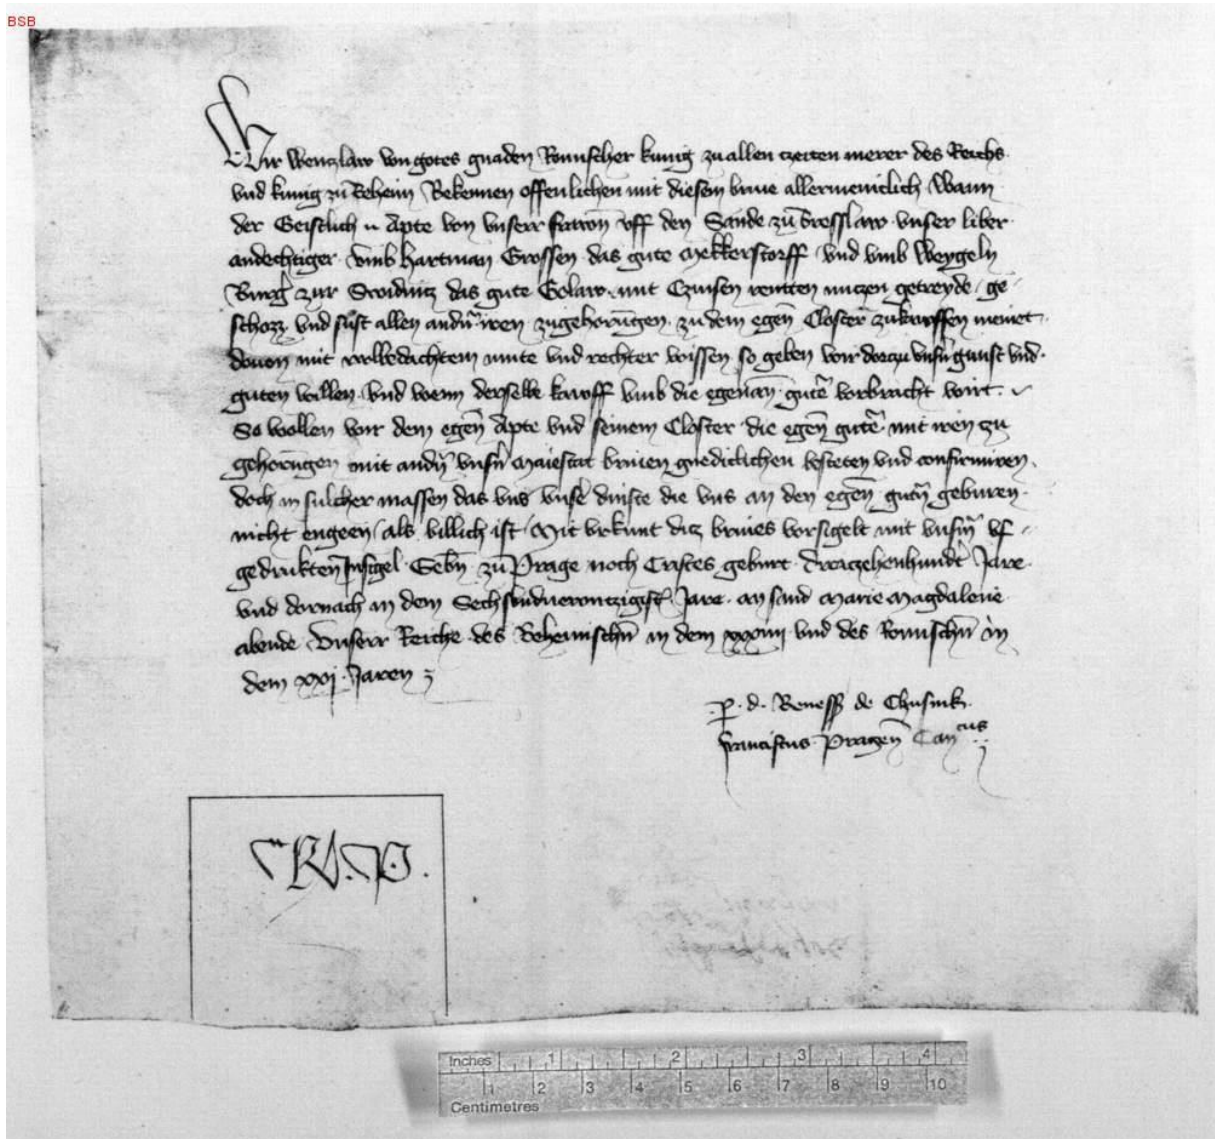 BSB
Wir Wenczlaw von gotes gnaden Romischer kunig zu allen czeiten merer des Reichs
vnd kunig zu Beheim Bekennen offenlichen mit diesem briue allermeniclich Wann
der Geistlich Apte von vnserr frawon vff dem Sande zu Bresslaw vnser liber
andechtiger vmb hartman Grossen das gute Mekkerstorff vnd vmb Weygeln
Burg zur Swidnitz das gute Golaw mit Czinsen rentten nuczen getreyde ge
schozz vnd sust allen andn iren zugehorungen zu dem egen Closter zu kawffen meinet
douon mit wolbedachtem mute vnd rechter wissen so geben wir dorczu vnsn gunst vnd
guten willen vnd wenn derselbe kawff vmb die egenan gute vorbriicht wirt
So wollen wir dem egen Apte vnd seinem Closter die egen gute mit iren zu
gehorungen mit andn vnsn Maiestat briuen gnediclichen besteten vnd confirmiren
doch in sulcher massen das vns vnse dinste die vns an den egen gutn geburen
nicht engeen als billich ist Mit vrkunt diz briues vorsigelt mit vnsm vf
gedrukten Insigel Gebn zu Prage noch Cristes geburt dreyczehenhundt Jare
vnd dornach in dem Sechsvndnewntzigist Jare an sand Marie Magdalene
abende Vnserr Reiche des Behemischn in dem xxxiiij vnd des Romischn in
dem xxj Jaren
p. d. Beness de Chusnik
Franciscus Pragen Can cus
Inches 1 2 3 4
1 2 3 4 5 6 7 8 9 10
Centimetres